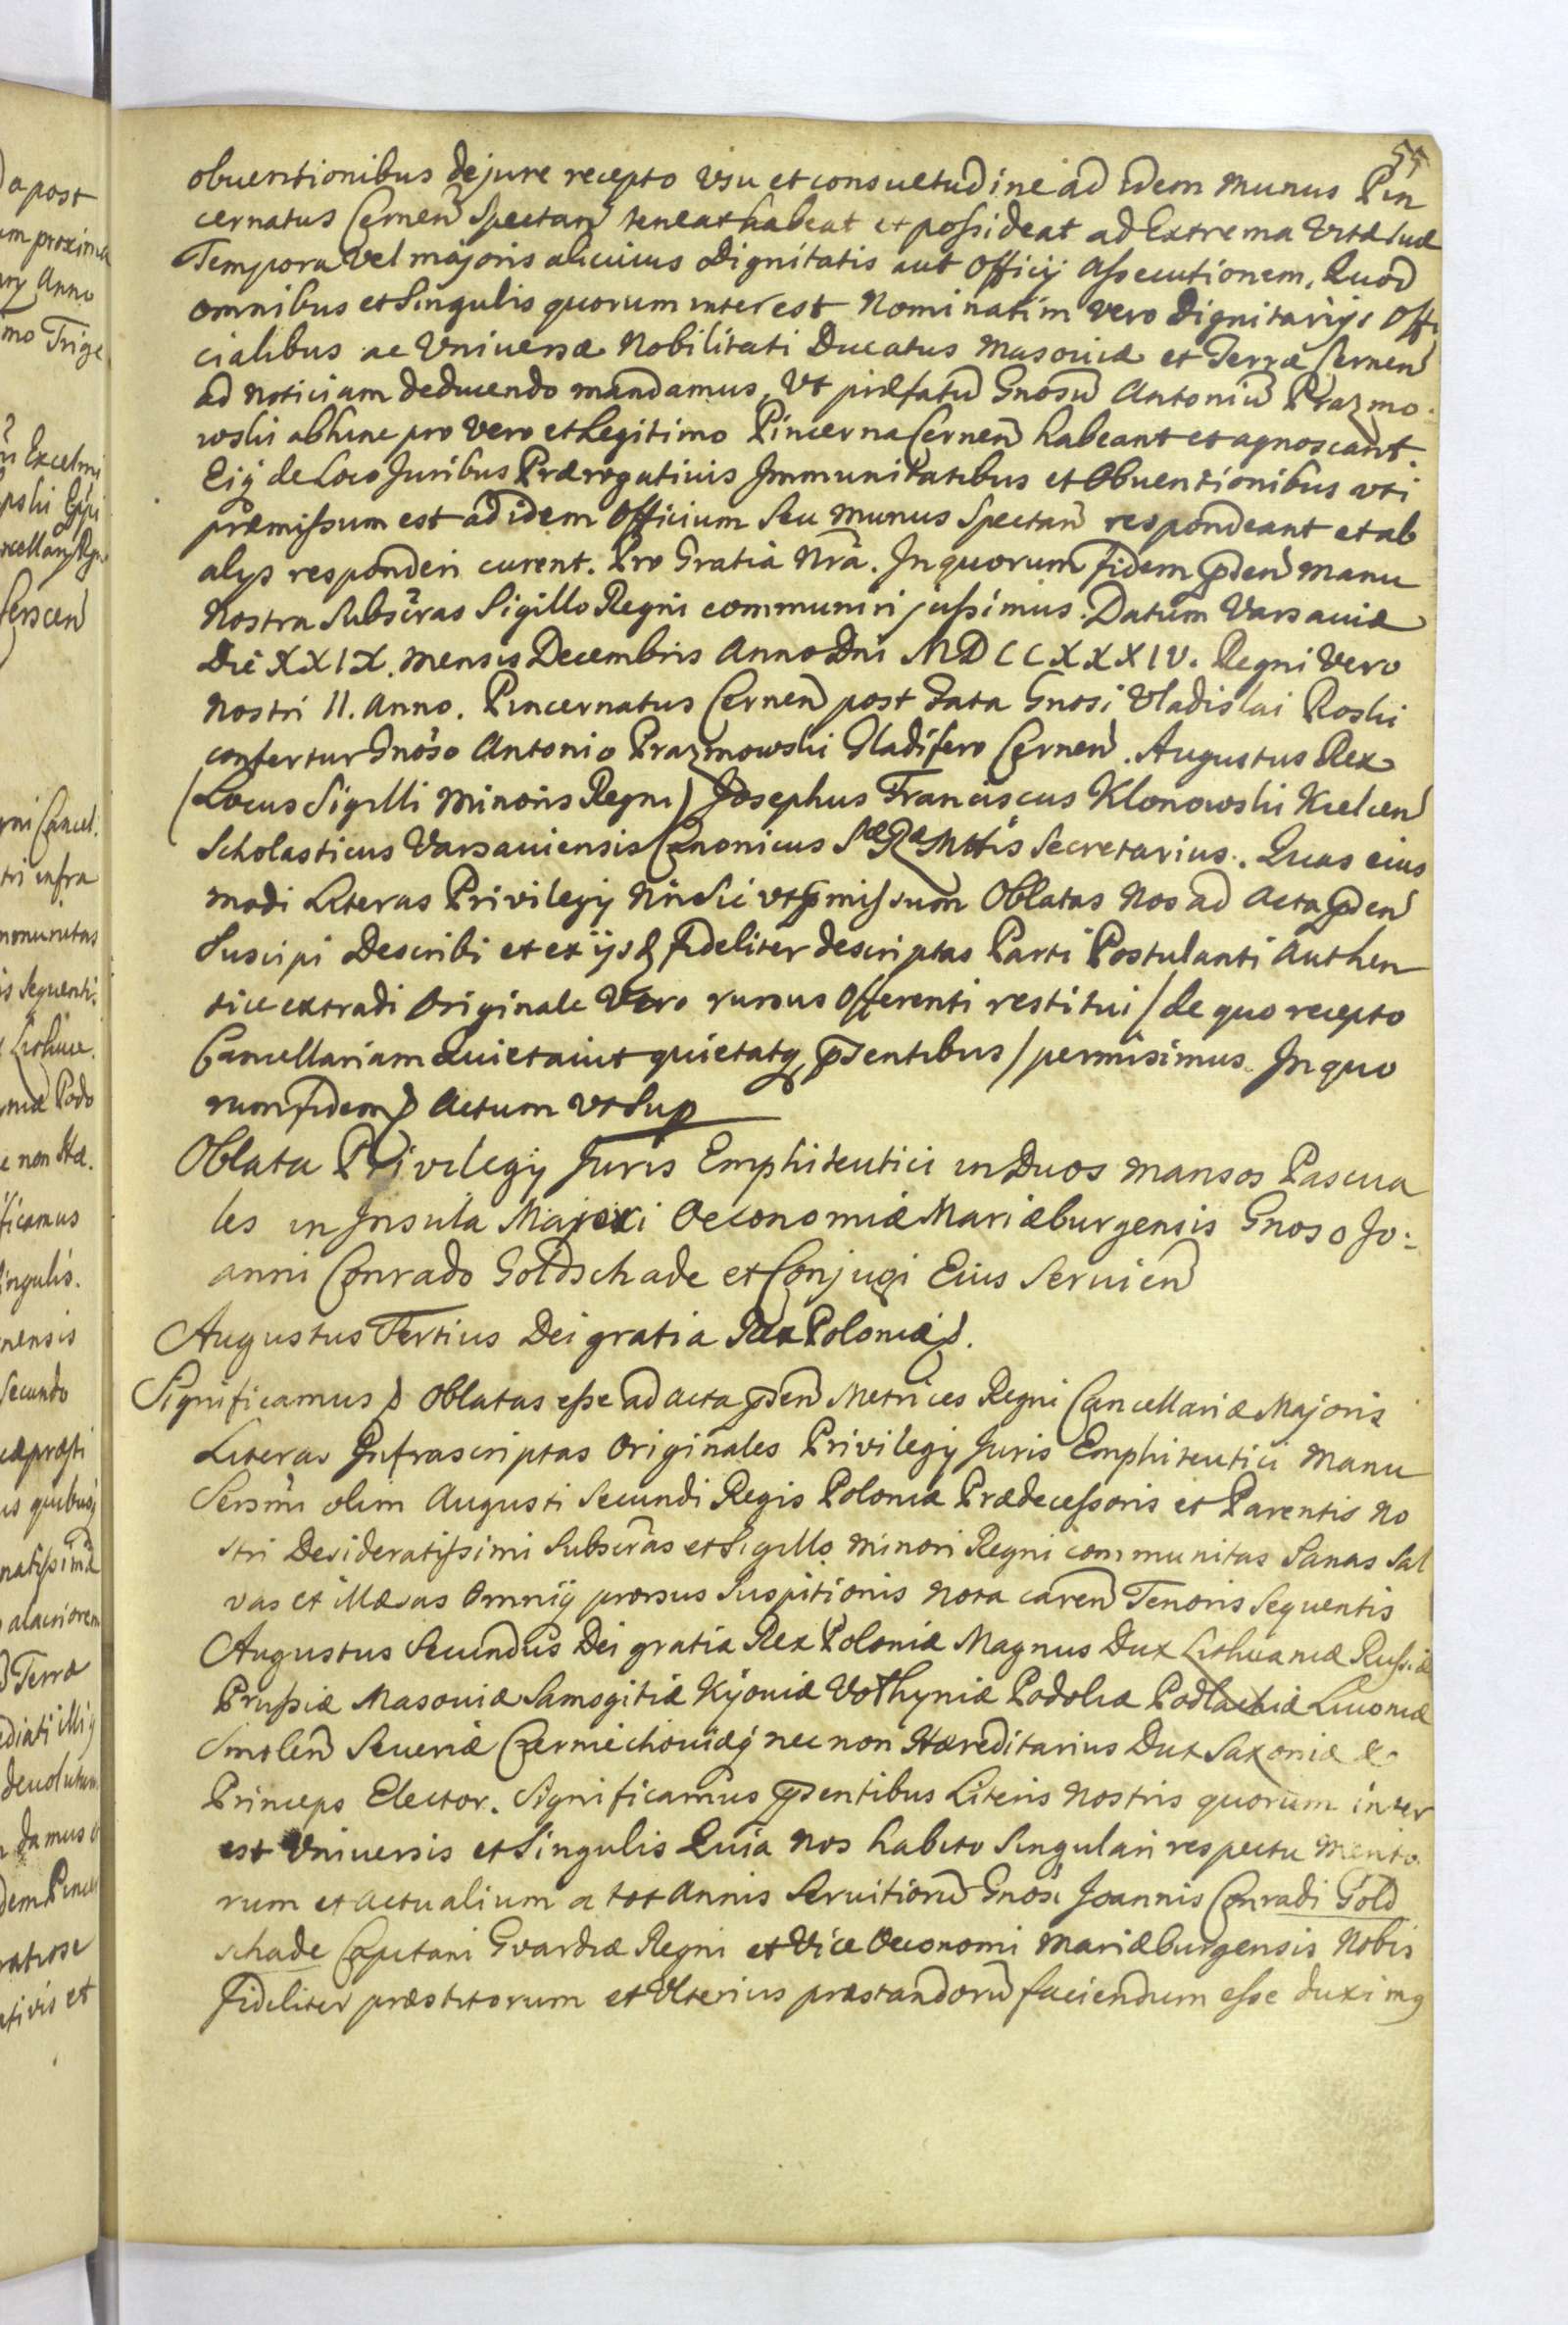 55
obuentionibus de jure recepto vsu et consuetudine ad idem munus Pin
cernatus Cernen̄ Spectan̄ teneat habeat et poſsideat ad Extrema Vitæ Suæ
Tempora Vel majoris alicuius Dignitatis aut Officij Aſsecutionem. Quod
omnibus et Singulis quorum interest Nominatim vero Dignitarijs Offi
cialibus ac Vniuersæ Nobilitati Ducatus Masouiæ et Terræ Cernen̄
ad noticiam deducendo mandamus, Vt præfatū Gnosū Antoniū Prazmo.
wski abhinc pro Vero et Legitimo Pincerna Cernen̄ habeant et agnoscant
Eiq de Loco Juribus Prærogatiuis Jmmunitatibus et Obuentionibus vti
præmiſsum est ad idem Officium Seu Munus Spectan̄ respondeant et ab
alijs responderi curent. Pro Gratia Nrā. Jn quorum fidem p̄sen̄ manu
Nostra Subscr̄as Sigillo Regni communiri juſsimus. Datum Varsauiæ
Die XXIX. mensis Decembris Anno Dni MDCCXXXIV. Regni Vero
Nostri II. Anno. Pincernatus Cernen̄ post Fata Gnosi Vladislai Roski
confertur Gnoso Antonio Prazmowski Gladifero Cernen̄. Augustus Rex
(Locus Sigilli Minoris Regni) Josephus Franciscus Klonowski Kielcen̄
Scholasticus Varsauiensis Canonicus Sæ Ræ Mttis Secretarius. Quas eius
modi Literas Privilegij Nr̄is Sic vt p̄miſsum Oblatas Nos ad Acta p̄sen̄
Suscipi Describi et ex ijsd fideliter descriptas Parti Postulanti Authen
tice extradi Originale Vero rursus Offerenti restitui / de quo recepto
Cancellariam Quietauit quietatq p̄sentibus / permisimus. Jn quo
rum fidem & Actum Vt Sup
Oblata Privilegij Juris Emphiteutici in Duos Mansos Pascua
les in Jnsula Majori Oeconomiæ Mariæburgensis Gnoso Jo:
anni Conrado Goldschade et Conjugi Eius Seruien̄
Augustus Tertius Dei gratia Rex Poloniæ &.
Significamus & Oblatas eſse ad Acta p̄sen̄ Metrices Regni Cancellariæ Majoris
Literas Jnfrascriptas Originales Privilegij Juris Emphiteutici Manu
Serſmi olim Augusti Secundi Regis Poloniæ Prædeceſsoris et Parentis No
stri Desideratiſsimi Subscr̄as et Sigillo Minori Regni communitas Sanas Sal
vas et illæsas Omniq prorsus Suspitionis Nota caren̄ Tenoris Sequentis
Augustus Secundus Dei gratia Rex Poloniæ Magnus Dux Lithuaniæ Ruſsiæ
Pruſsiæ Masouiæ Samogitiæ Kijouiæ Volhyniæ Podoliæ Podlachiæ Liuoniæ
Smolen̄ Seueriæ Czerniechouiæq nec non Hæreditarius Dux Saxoniæ &
Princeps Elector. Significamus p̄sentibus Literis Nostris quorum inter
est Vniuersis et Singulis Quia Nos habito Singulari respectu Merito
rum et Actualium a tot Annis Seruitiorū Gnosi Joannis Conradi Gold
schade Capitani Gvardiæ Regni et Vice Oeconomi Mariæburgensis Nobis
Fideliter præstitorum et Vlterius præstandorū faciendum eſse duximq